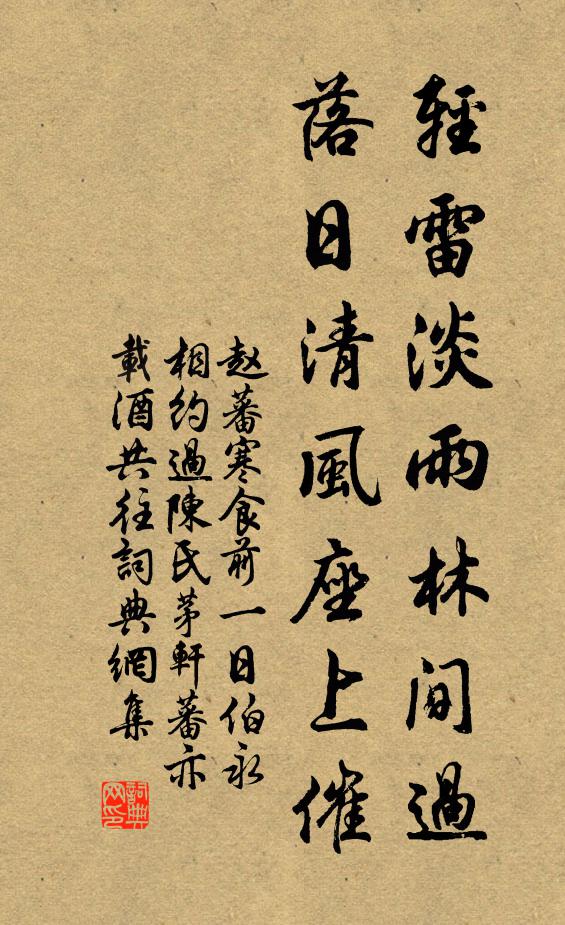 輕雷淡雨林間過
落日清風座上催
赵蕃寒食前一日伯永
相約過陳氏茅軒蕃亦
載酒共往詞典網集
詞典
网印